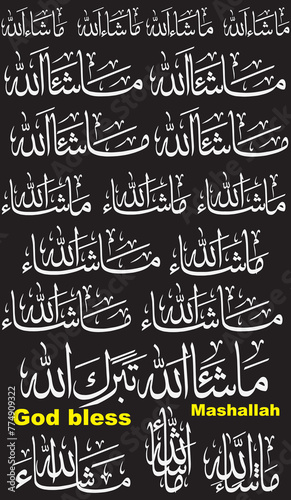 ما شاء الله ما شاء الله ما شاء الله ما شاء الله
ما شاء الله ما شاء الله
ما شاء الله ما شاء الله
ما شاء الله ما شاء الله
ما شاء الله ما شاء الله ما شاء الله
ما شاء الله ما شاء الله
ما شاء الله ما شاء الله ما شاء الله
ما شاء الله تبرك الله
God bless Mashallah
ما شاء الله ما شاء الله ما شاء الله
Adobe Stock | #774909322